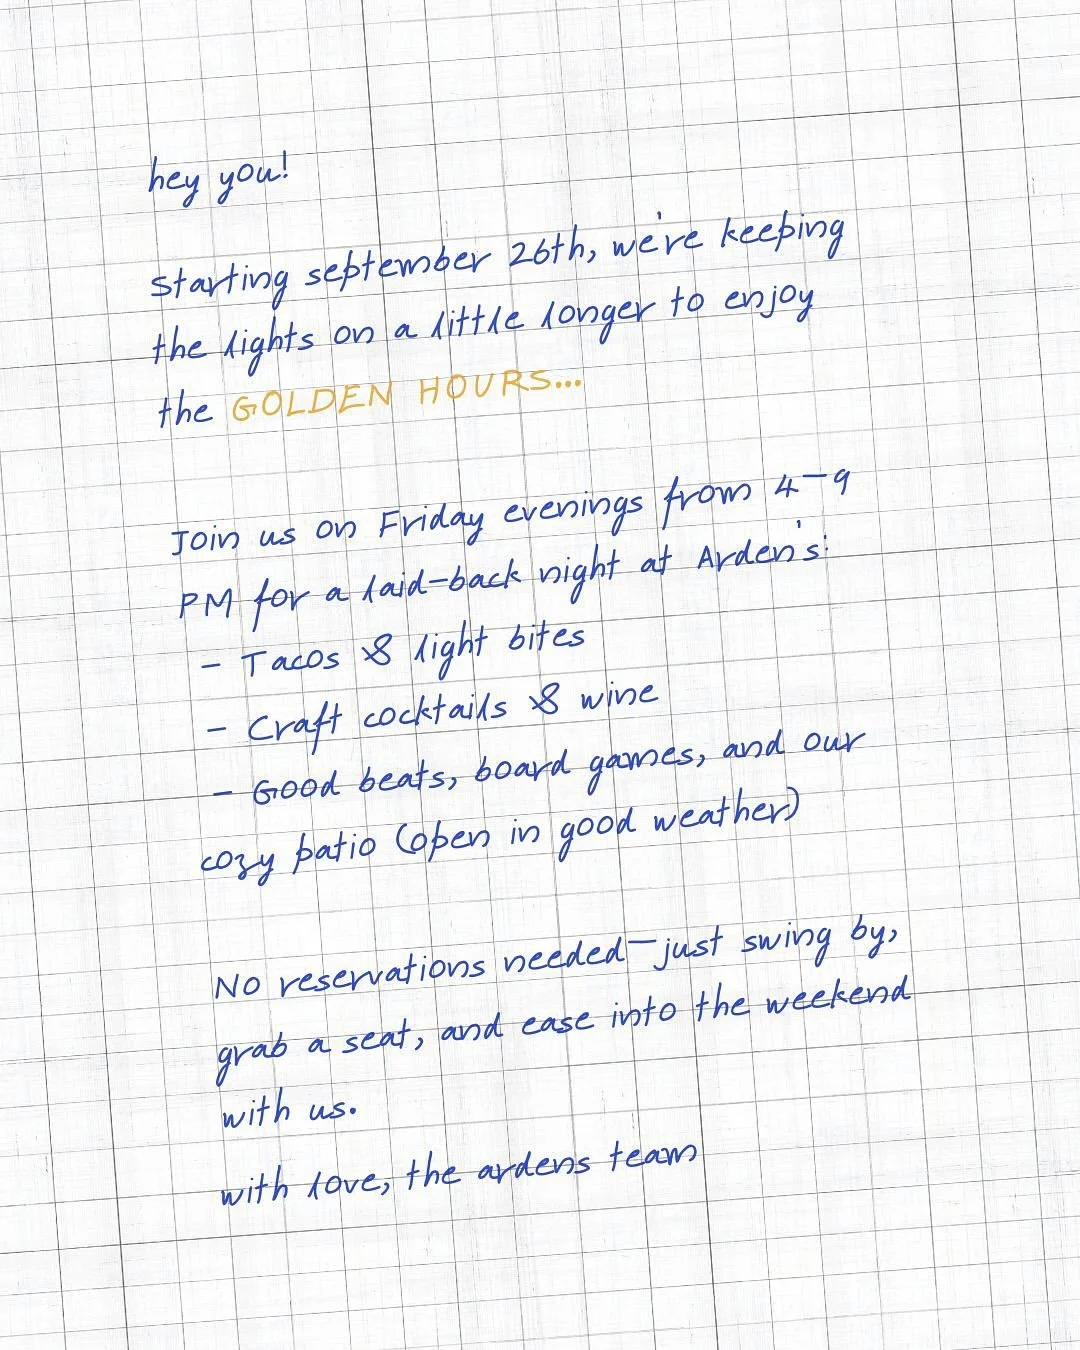 hey you!
starting september 26th, we're keeping
the lights on a little longer to enjoy
the GOLDEN HOURS...
Join us on Friday evenings from 4–9
PM for a laid-back night at Arden's:
- Tacos & light bites
- Craft cocktails & wine
- Good beats, board games, and our
cozy patio (open in good weather)
No reservations needed—just swing by,
grab a seat, and ease into the weekend
with us.
with love, the ardens team